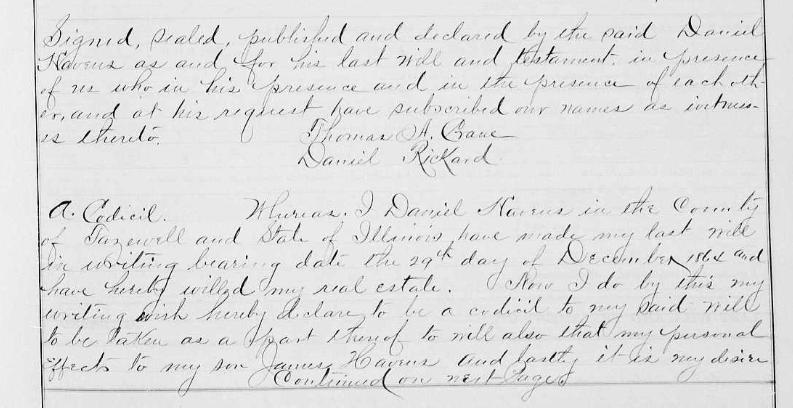 Signed, sealed, published and declared by the said Daniel
Havens as and for his last will and testament. in presence
of us who in his presence and in the presence of each oth-
er, and at his request have subscribed our names as witness-
es thereto.
Thomas A.
Daniel Rickard
A. Codicil. Whereas. I Daniel Havens in the County
of Tazewell and State of Illinois, have made my last will
in writing bearing date the 29th day of December, 1864 and
have hereby willed my real estate. Now I do by this my
writing wish hereby declare, to be a codicil to my said will
to be taken as a part thereof to will also that my personal
effects to my son James Havens and lastly it is my desire
Continued on next Page